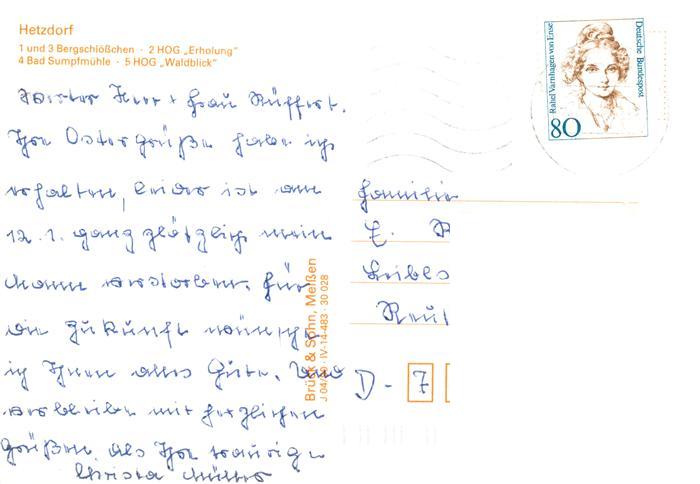 Hetzdorf
1 und 3 Bergschlößchen · 2 HOG „Erholung“
4 Bad Sumpfmühle · 5 HOG „Waldblick“
Rahel Varnhagen von Ense
Deutsche Bundespost
80
Herr + Frau
Ihre Ostergrüße habe ich
erhalten, leider ist am
12.1. ganz plötzlich mein
Mann verstorben. Für
die Zukunft wünsche
ich Ihnen alles Gute. Und
verbleibe mit herzlichen
Grüßen als Ihre traurige
Christa Müller
Familie
E.
Reut
D - 7
Brück & Sohn, Meißen
J 04/90 · IV-14-483 · 30 028